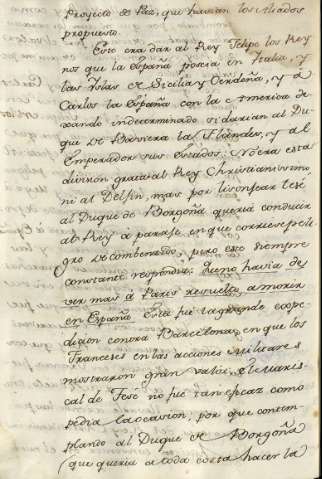 Proyecto de Paz, que havian los Aliados
propuesto.
Este era dar al Rey Felipe los Rey
nos que la España poseia en Italia, y
las Yslas de Sicilia y Cerdeña, y á
Carlos la España con la America de
xando indeterminado si darian al Du
que de Baviera la Flandes, y al
Emperador sus Estados: No era esta
division grata al Rey Christianissimo
ni al Delfin, mas por lisonjear Tesé
al Duque de Borgoña queria conducir
al Rey á parage en que corriese peli
gro de combatirlo, pero este siempre
constante respondia: que no havia de
ver mas á Paris resuelto a morir
en España Esta fue la grande expe
dicion contra Barcelona, en que los
Franceses en las acciones Militares
mostraron gran valor, el Maris
cal de Tesé no fue tan eficaz como
pedia la ocasion, por que contem
plando al Duque de Borgoña
que queria a toda costa hacer la